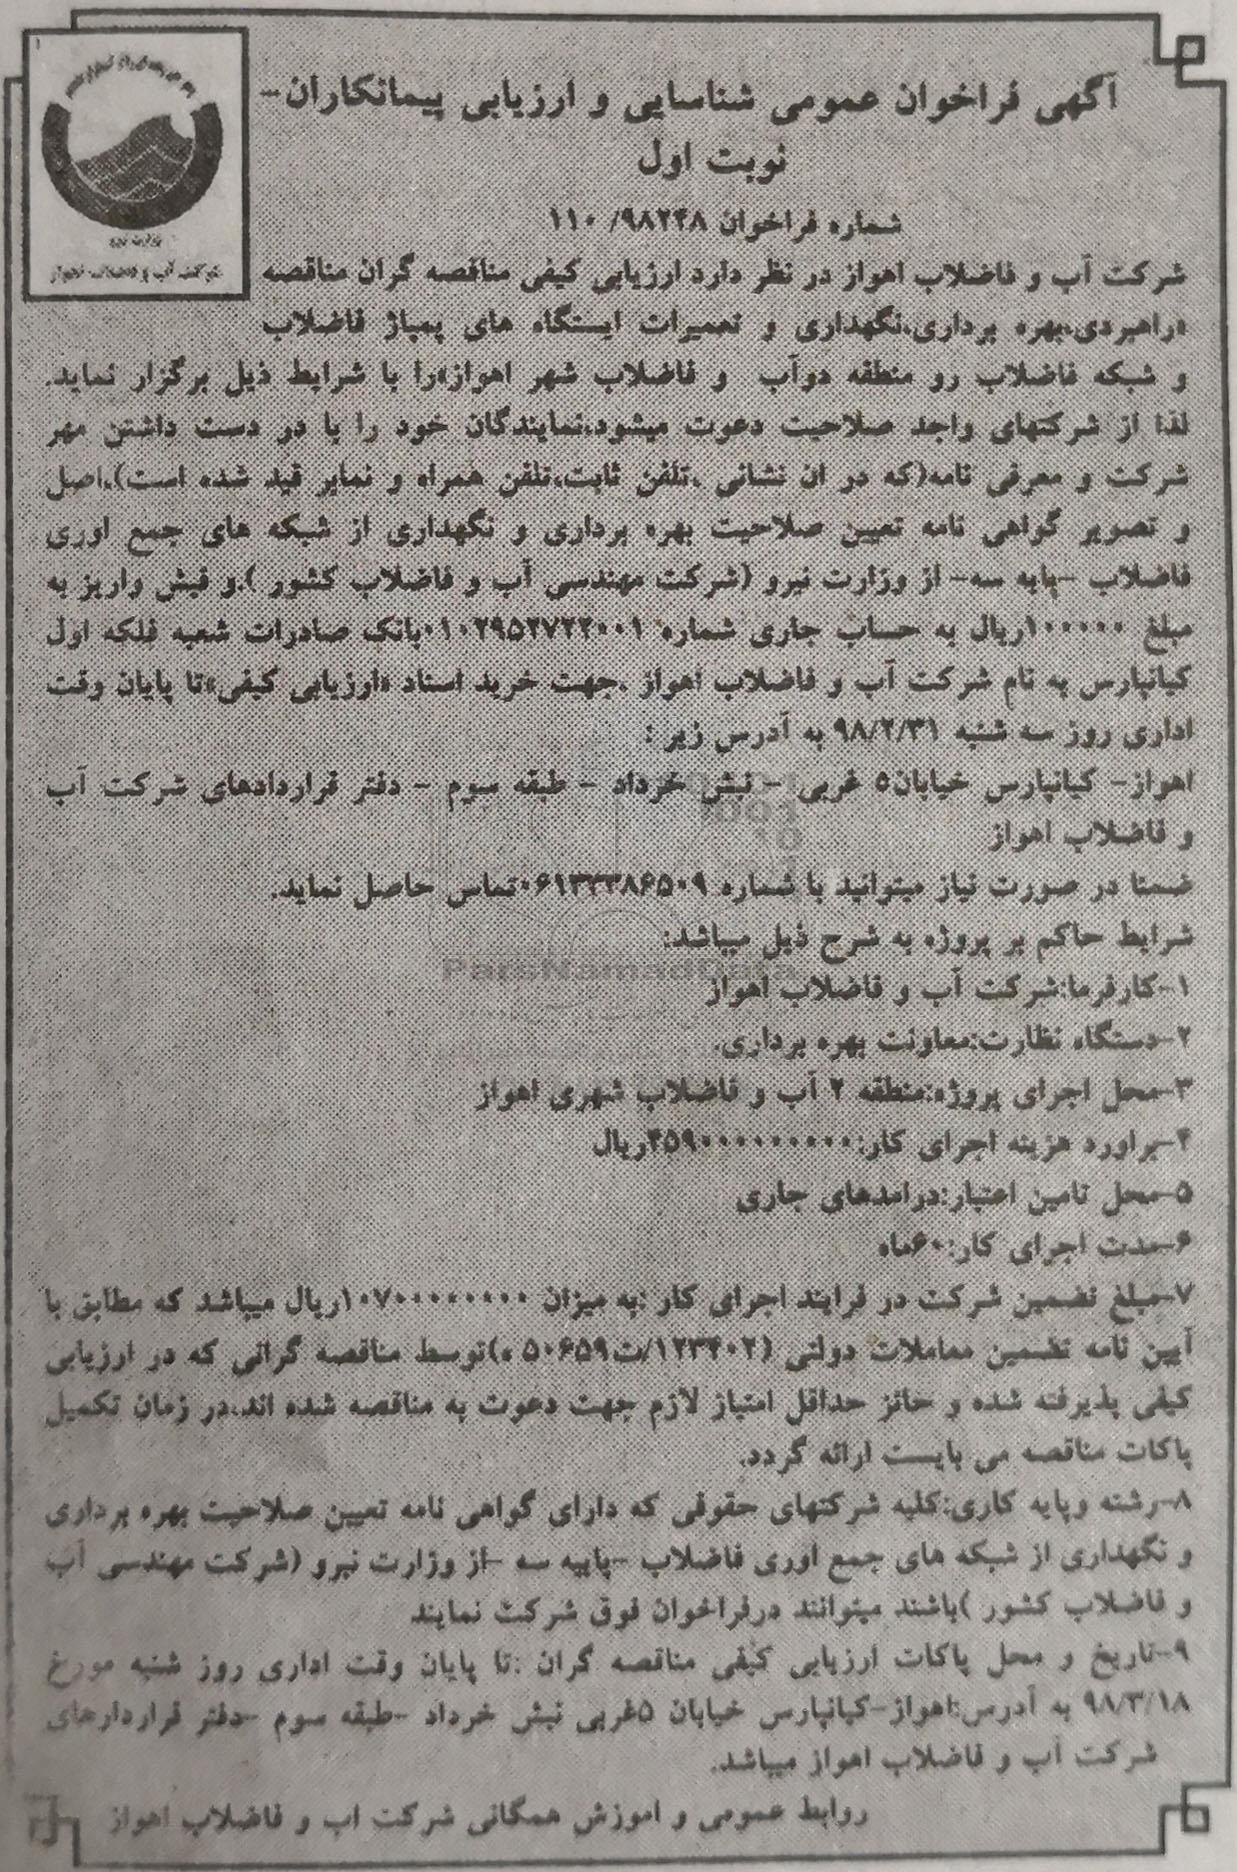 آگهی فراخوان عمومی شناسایی و ارزیابی پیمانکاران-
نوبت اول
شماره فراخوان ۹۸۲۴۸/ ۱۱۰
وزارت نیرو
شرکت آب و فاضلاب اهواز
شرکت آب و فاضلاب اهواز در نظر دارد ارزیابی کیفی مناقصه گران مناقصه
«راهبردی،بهره برداری،نگهداری و تعمیرات ایستگاه های پمپاژ فاضلاب
و شبکه فاضلاب رو منطقه دوآب و فاضلاب شهر اهواز»را با شرایط ذیل برگزار نماید.
لذا از شرکتهای واجد صلاحیت دعوت میشود،نمایندگان خود را با در دست داشتن مهر
شرکت و معرفی نامه(که در ان نشانی ،تلفن ثابت،تلفن همراه و نمابر قید شده است)،اصل
و تصویر گواهی نامه تعیین صلاحیت بهره برداری و نگهداری از شبکه های جمع اوری
فاضلاب -پایه سه- از وزارت نیرو (شرکت مهندسی آب و فاضلاب کشور )،و فیش واریز به
مبلغ ۱۰۰۰۰۰۰ریال به حساب جاری شماره ۰۱۰۲۹۵۲۷۲۲۰۰۱بانک صادرات شعبه فلکه اول
کیانپارس به نام شرکت آب و فاضلاب اهواز ،جهت خرید اسناد «ارزیابی کیفی»تا پایان وقت
اداری روز سه شنبه ۹۸/۲/۳۱ به آدرس زیر :
اهواز- کیانپارس خیابان۵ غربی - نبش خرداد - طبقه سوم - دفتر قراردادهای شرکت آب
و فاضلاب اهواز
ضمنا در صورت نیاز میتوانید با شماره ۰۶۱۳۳۳۸۶۵۰۹تماس حاصل نماید.
شرایط حاکم بر پروژه به شرح ذیل میباشد:
ParsNamadData
۱-کارفرما:شرکت آب و فاضلاب اهواز
۲-دستگاه نظارت:معاونت بهره برداری.
۳-محل اجرای پروژه:منطقه ۲ آب و فاضلاب شهری اهواز
۴-براورد هزینه اجرای کار:۴۵۹۰۰۰۰۰۰۰۰۰۰ریال
۵-محل تامین اعتبار:درامدهای جاری
۶-مدت اجرای کار:۶۰ماه
۷-مبلغ تضمین شرکت در فرایند اجرای کار :به میزان ۱۰۷۰۰۰۰۰۰۰۰ریال میباشد که مطابق با
آیین نامه تضمین معاملات دولتی (۱۲۳۴۰۲/ت۵۰۶۵۹ ه)توسط مناقصه گرانی که در ارزیابی
کیفی پذیرفته شده و حائز حداقل امتیاز لازم جهت دعوت به مناقصه شده اند،در زمان تکمیل
پاکات مناقصه می بایست ارائه گردد.
۸-رشته وپایه کاری:کلیه شرکتهای حقوقی که دارای گواهی نامه تعیین صلاحیت بهره برداری
و نگهداری از شبکه های جمع اوری فاضلاب -پاییه سه -از وزارت نیرو (شرکت مهندسی آب
و فاضلاب کشور )باشند میتوانند درفراخوان فوق شرکت نمایند
۹-تاریخ و محل پاکات ارزیابی کیفی مناقصه گران :تا پایان وقت اداری روز شنبه مورخ
۹۸/۳/۱۸ به آدرس:اهواز-کیانپارس خیابان ۵غربی نبش خرداد -طبقه سوم -دفتر قراردارهای
شرکت آب و فاضلاب اهواز میباشد.
روابط عمومی و اموزش همگانی شرکت اب و فاضلاب اهواز